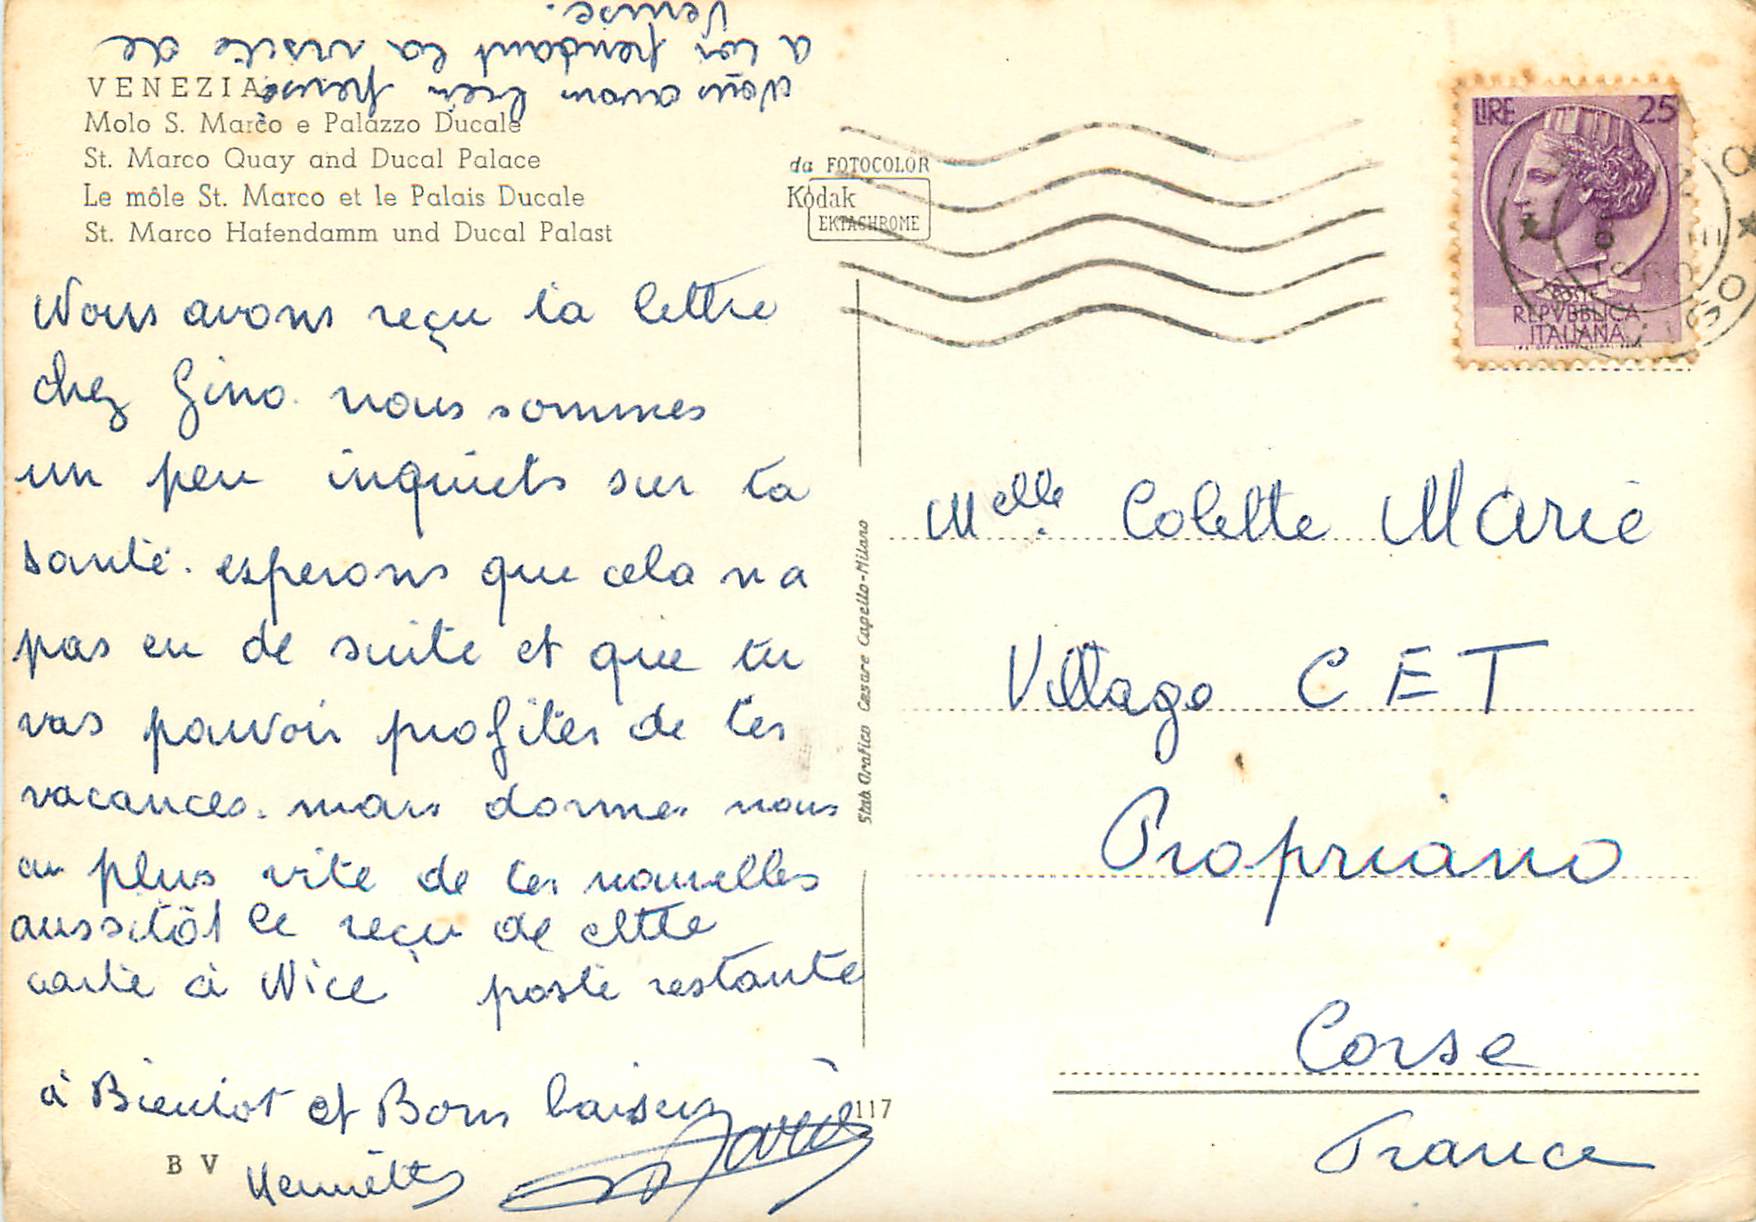 Nous avons bien pensé
a toi pendant la visite de
Venise.
VENEZIA
Molo S. Marco e Palazzo Ducale
St. Marco Quay and Ducal Palace
Le môle St. Marco et le Palais Ducale
St. Marco Hafendamm und Ducal Palast
da FOTOCOLOR
Kodak
EKTACHROME
LIRE 25
POSTE
REPVBBLICA
ITALIANA
Nous avons reçu ta lettre
chez Gino. nous sommes
un peu inquiets sur ta
santé. esperons que cela n a
pas eu de suite et que tu
vas pouvoir profiter de tes
vacances. mais donnes nous
au plus vite de tes nouvelles
aussitôt le reçu de cette
carte à Nice poste restante
à Bientot et Bons baisers
Henriette
B V
117
Stab. Grafico Cesare Capello-Milano
Melle. Colette Marie
Village C E T
Propriano
Corse
France